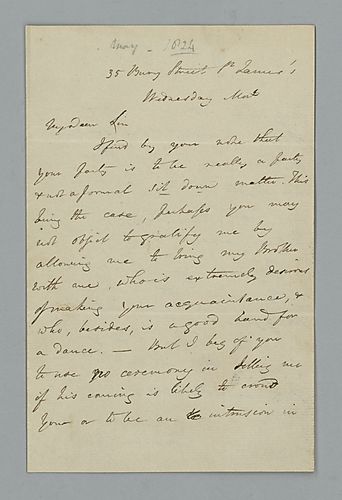 May - 1824
35 Bury Street St James's
Wednesday Mor.g
My dear Sir
I find by your note that
your party is to be really a party
& not a formal sit down matter. This
being the case, perhaps you may
not object to gratify me by
allowing me to bring my Brother
with me, who is extremely desirous
of making your acquaintance, &
who, besides, is a good hand for
a dance. — But I beg of you
to use no ceremony in telling me
if his coming is likely to crowd
your or to be an intrusion in